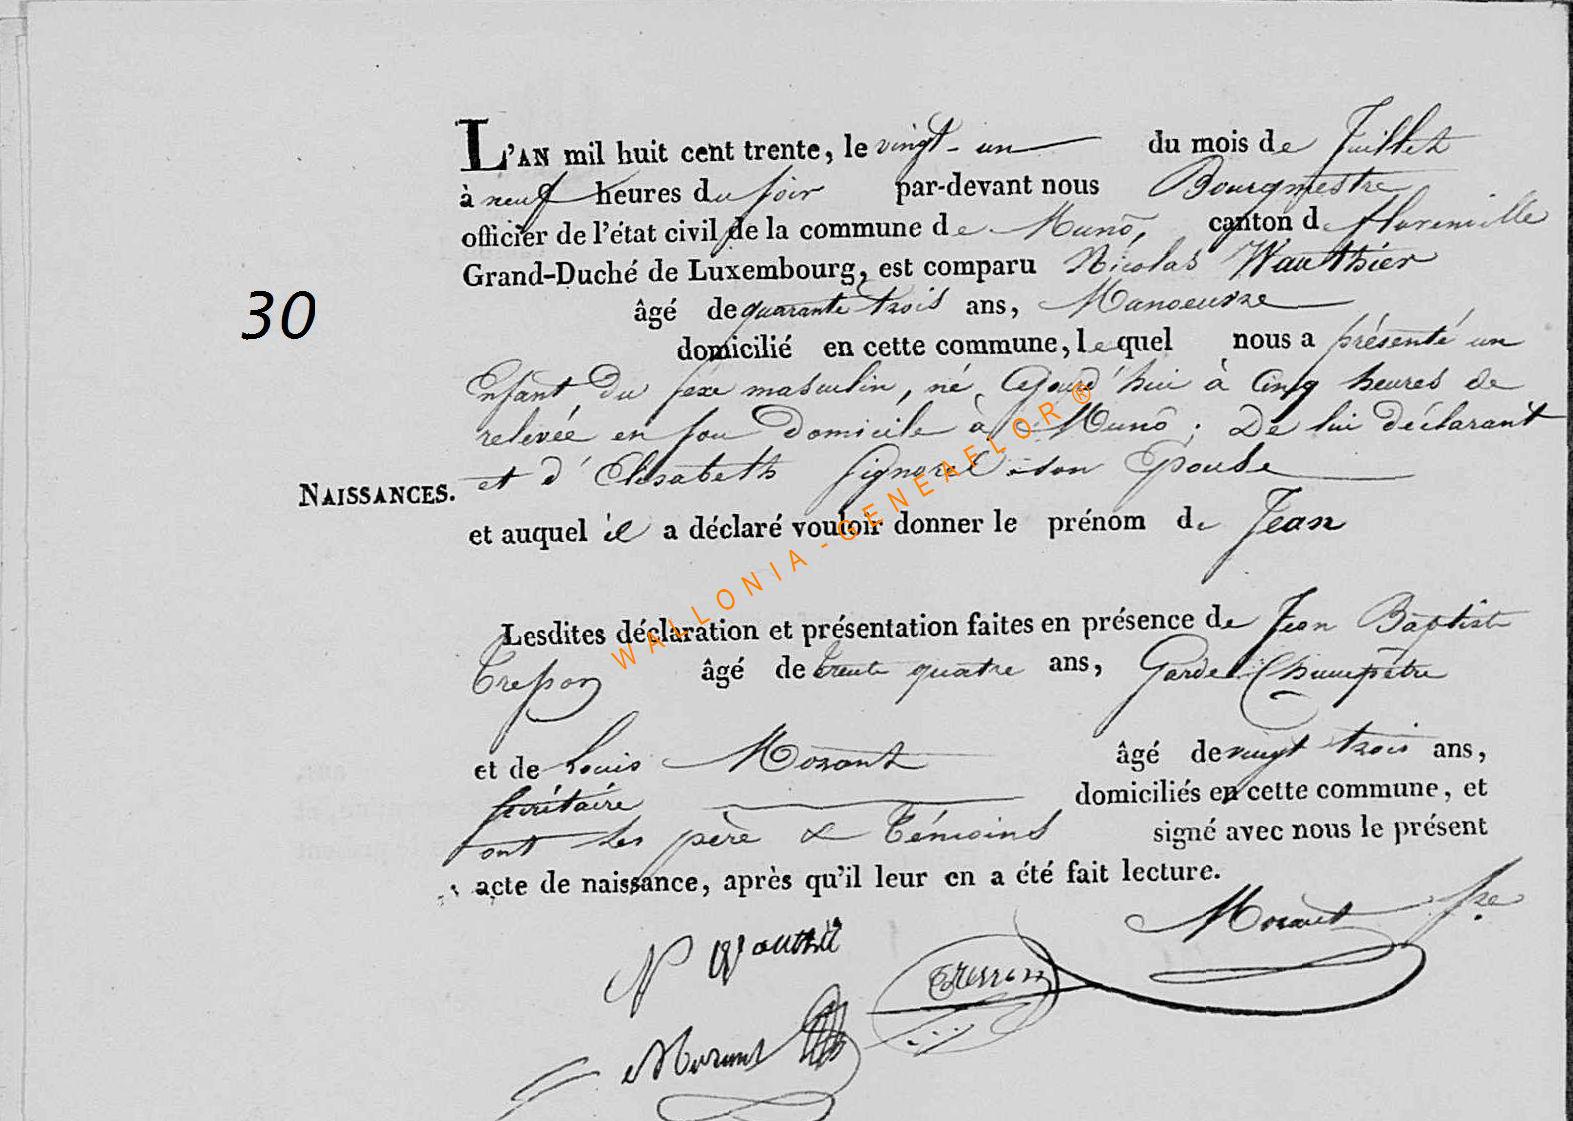 L'AN mil huit cent trente, le vingt-un du mois de Juillet
à neuf heures du soir par-devant nous Bourgmestre
officier de l'état civil de la commune de Munô, canton de florenville
Grand-Duché de Luxembourg, est comparu Nicolas Wauthier
30
âgé de quarante trois ans, Manoeuvre
domicilié en cette commune, lequel nous a présenté un
Enfant du sexe masculin, né à cinq heures de
relévée en son domicile à Munô ; De lui déclarant
et d'Elisabeth Signorel son Epouse
NAISSANCES.
et auquel il a déclaré vouloir donner le prénom de Jean
Lesdites déclaration et présentation faites en présence de Jean Baptiste
âgé de trente quatre ans, Garde Champêtre
et de Louis Morant âgé de vingt trois ans,
sécrétaire domiciliés en cette commune, et
ont les père & Témoins signé avec nous le présent
acte de naissance, après qu'il leur en a été fait lecture.
N Wauthié
Morant
WALLONIA-GENEAFLOR®